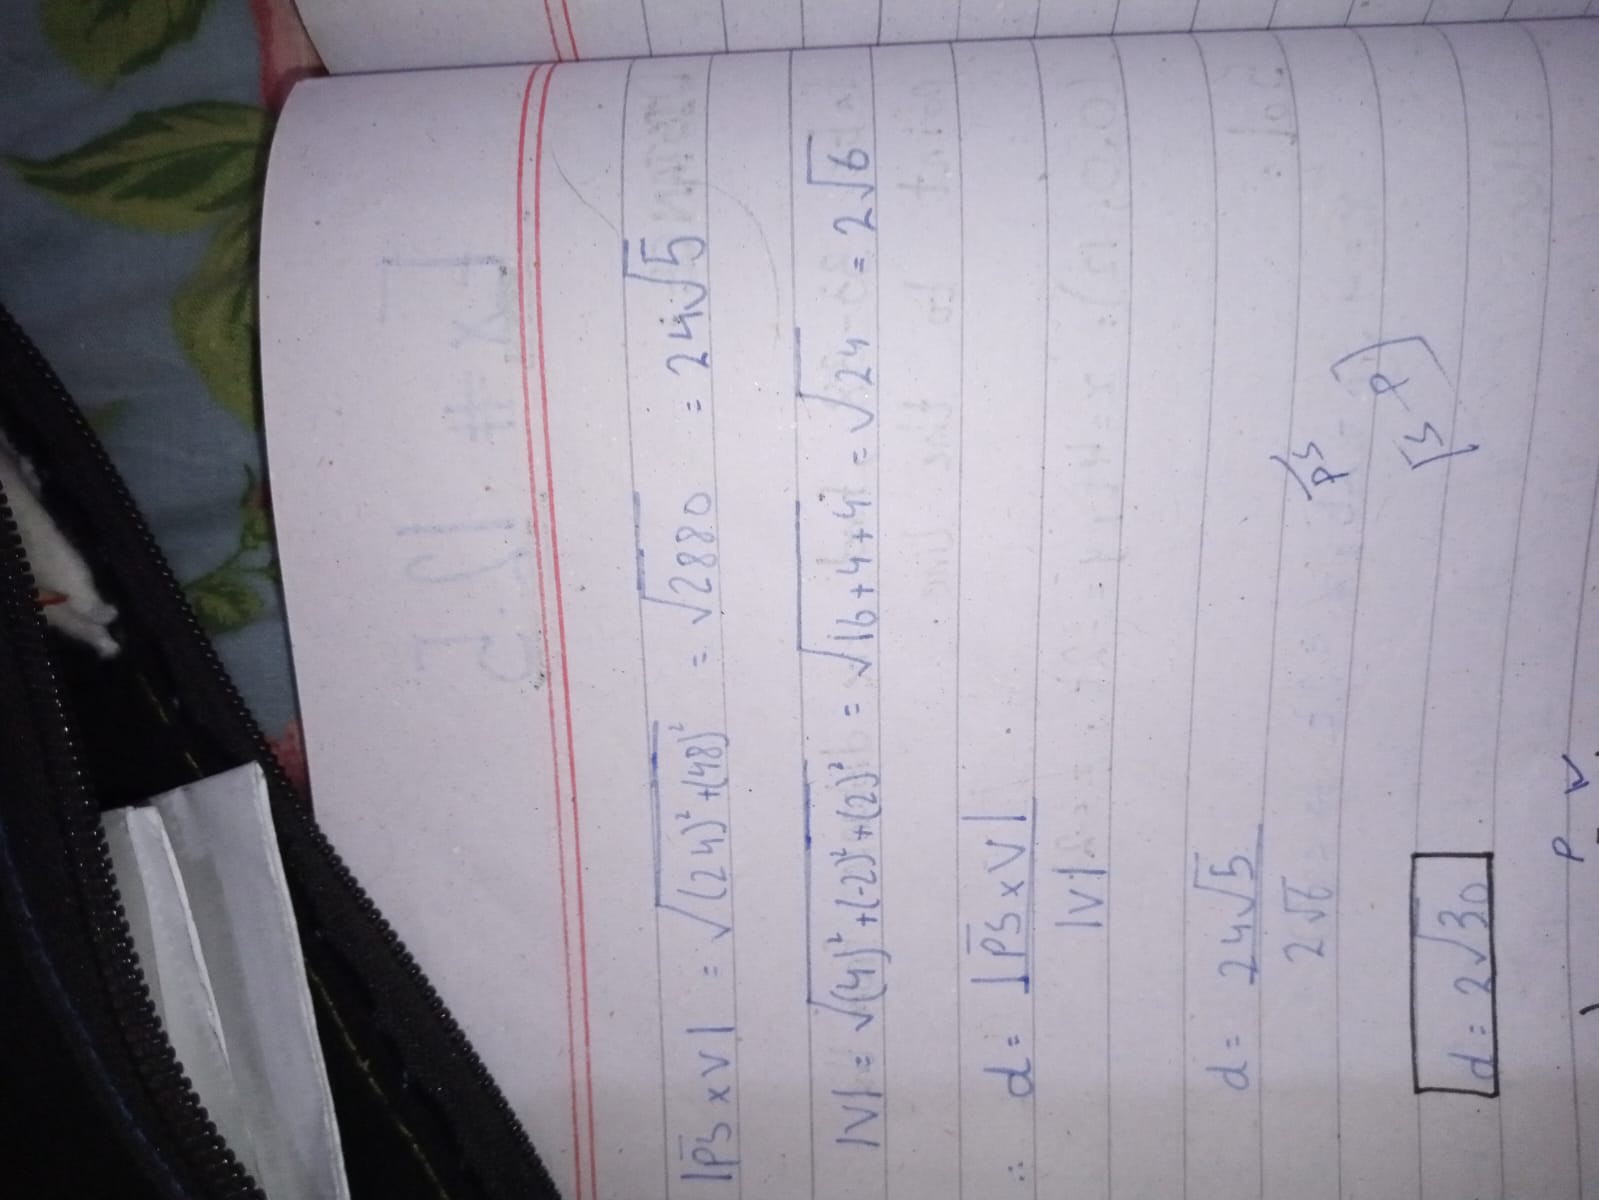 |PS̄ x V| = √(24)² + (48)² = √2880 = 24√5
|V| = √(4)² + (-2)² + (2)² = √16+4+4 = √24 = 2√6
∴ d = |PS̄ x V|
|V|
d = 24√5
2√6
PS̄
d = 2√30
[S-P)
P V